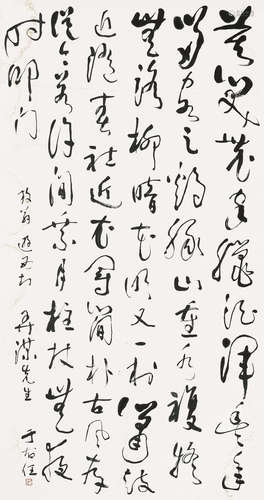 莫笑農家臘酒渾豐年
留客足雞豚山重水複疑
無路柳暗花明又一村簫鼓
追隨春社近衣冠簡朴古風存
從今若許閒乘月柱杖無夜
時叩門
放翁遊西村
先生
于右任